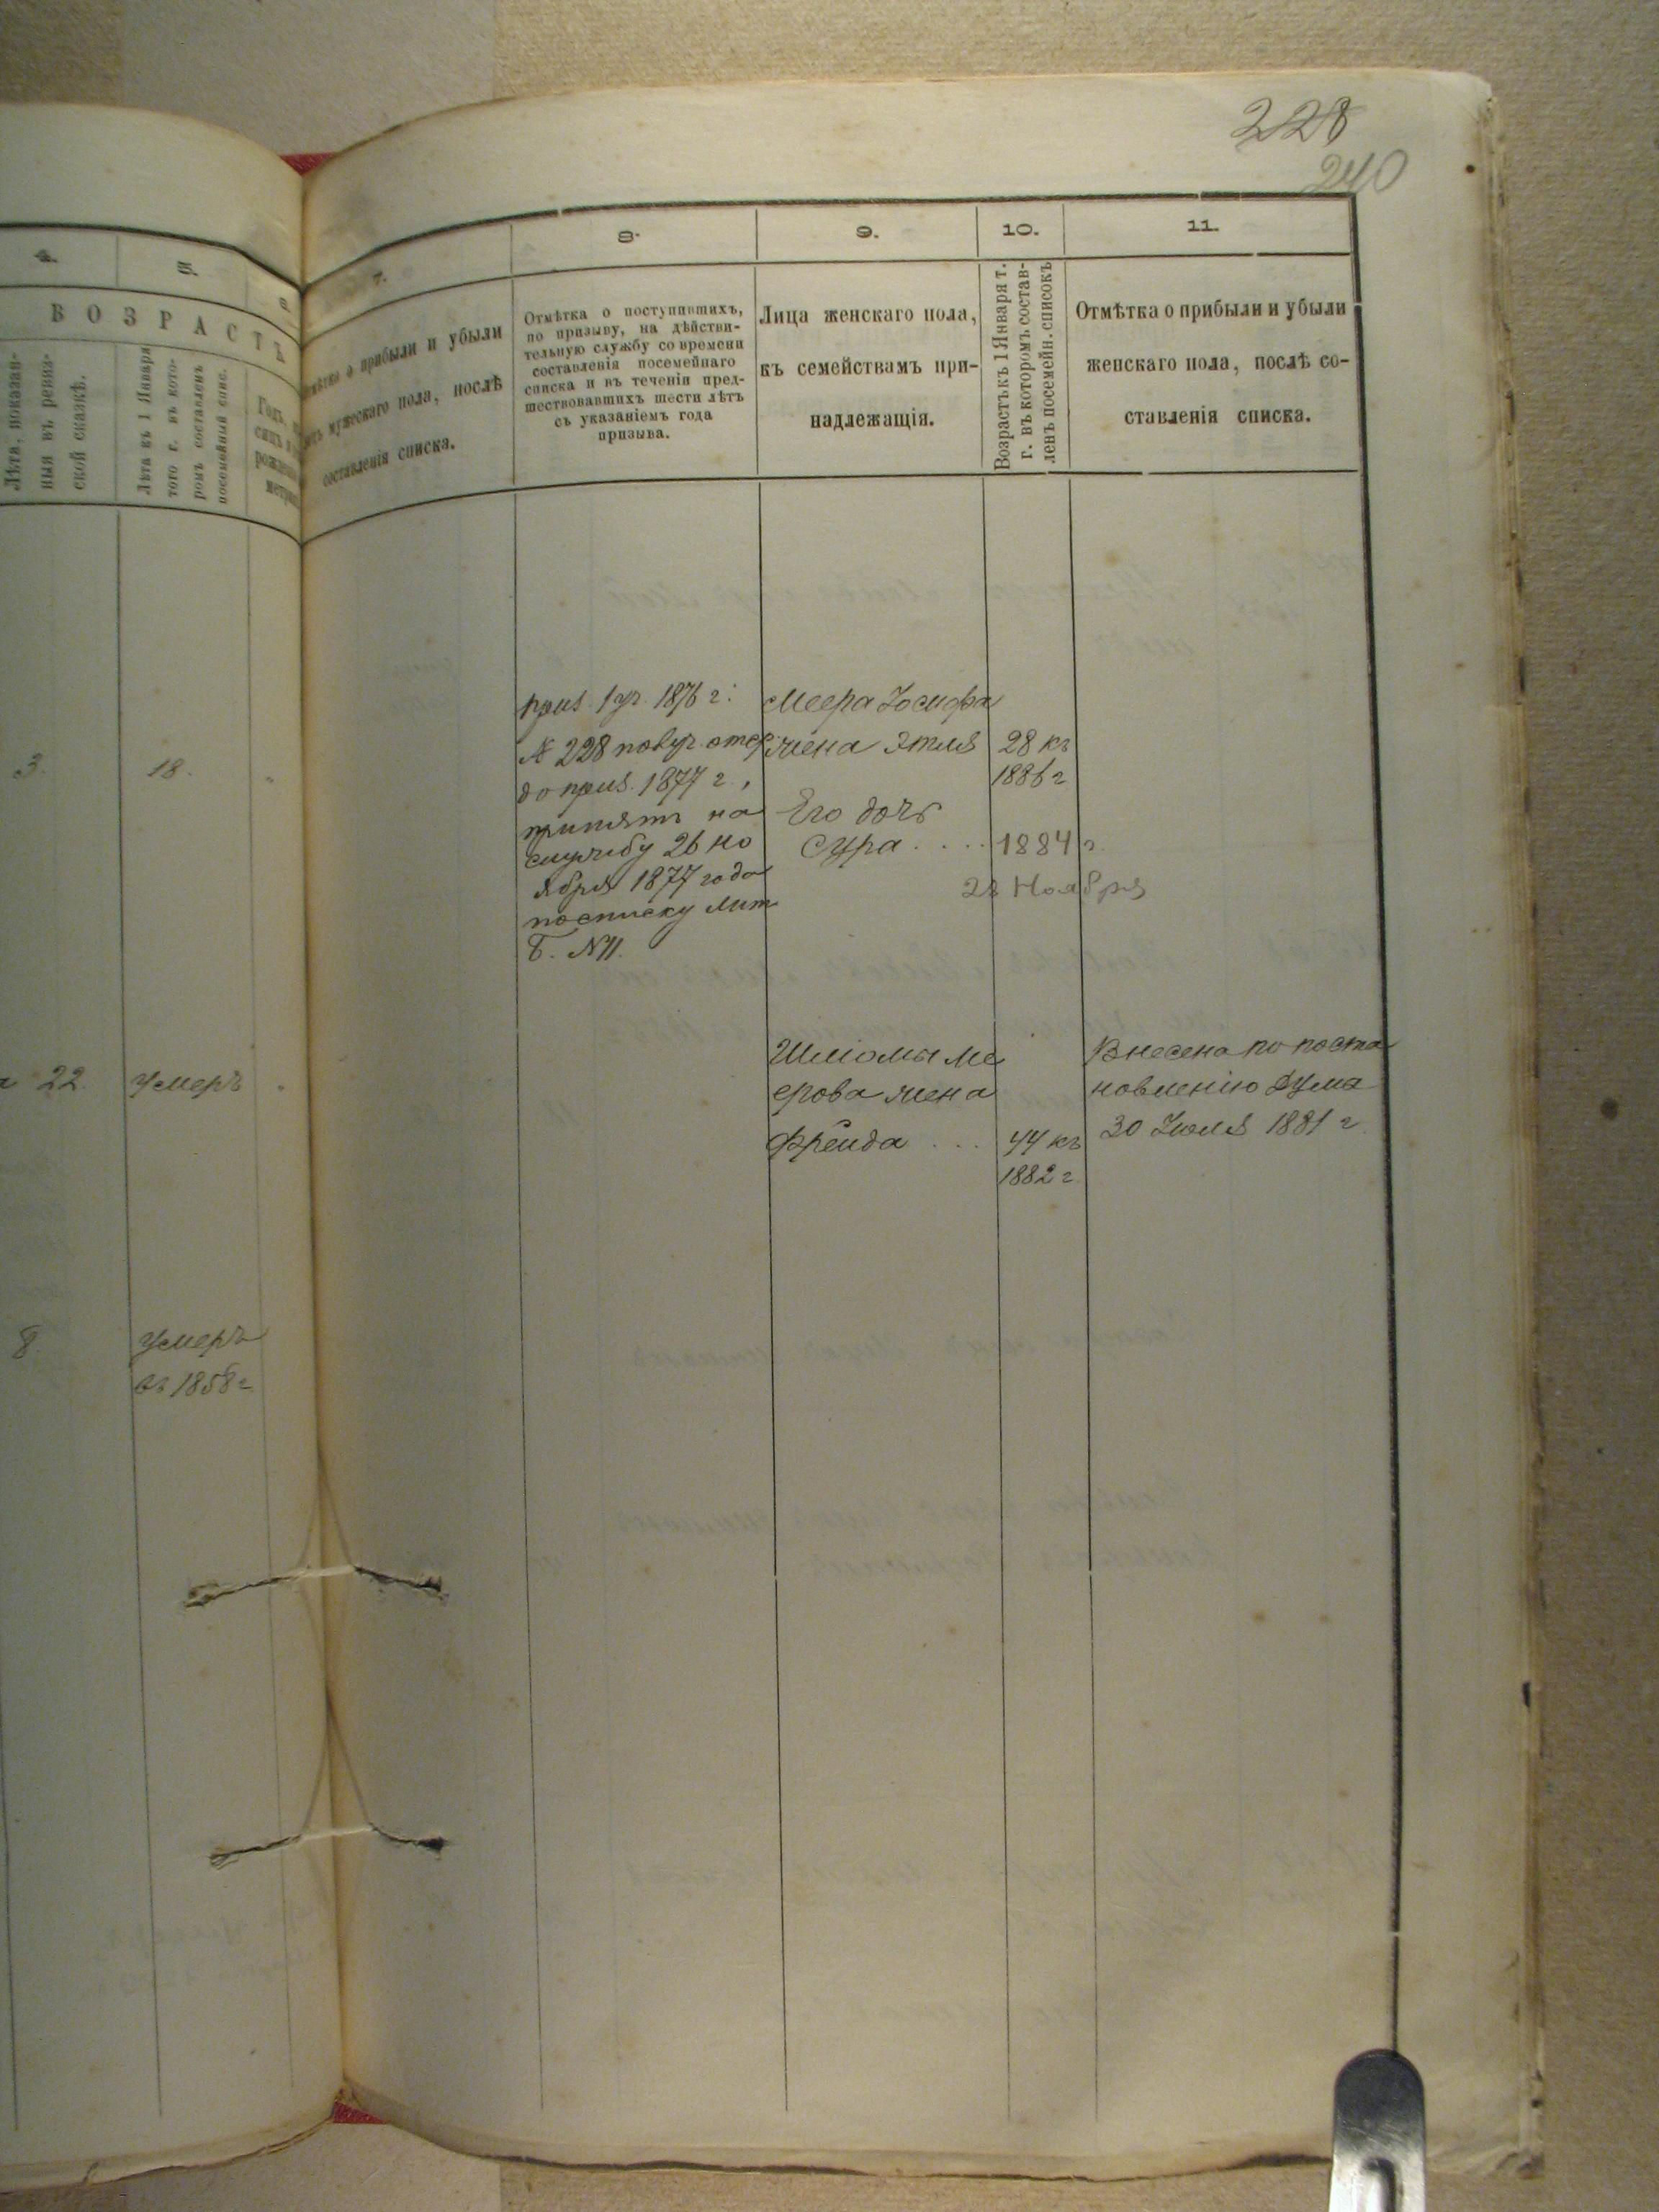 228
240
4.
5.
6
ВОЗРАСТЪ
Лѣта, показан-
ныя въ ревиз-
ской сказкѣ.
Лѣта къ 1 Января
того г. въ кото-
ромъ составленъ
посемейный спис.
7.
о прибыли и убыли
мужескаго пола, послѣ
составленія списка.
8.
Отмѣтка о поступившихъ,
по призыву, на дѣйстви-
тельную службу со времени
составленія посемейнаго
списка и въ теченіи пред-
шествовавшихъ шести лѣтъ
съ указаніемъ года
призыва.
9.
Лица женскаго пола,
къ семействамъ при-
надлежащія.
10.
Возрастъ къ 1 Января т.
г. въ которомъ состав-
ленъ посемейн. списокъ
11.
Отмѣтка о прибыли и убыли
женскаго пола, послѣ со-
ставленія списка.
3.
18.
приз. 1 уч. 1876 г.
№ 228 получ. отср.
до приз. 1877 г.,
принятъ на
службу 26 но
ября 1877 года
по списку Лит
Б. № 11.
Меера Іосифа
жена Этля
28 къ
1886 г
Его дочь
Сура . . . . 1884 г.
28 Ноября
22
Умеръ
Шліомы Ме
ерова жена
Фрейда . . .
44 къ
1882 г
Внесена по поста
новленію Думы
30 Іюля 1881 г.
8
Умеръ
въ 1858 г